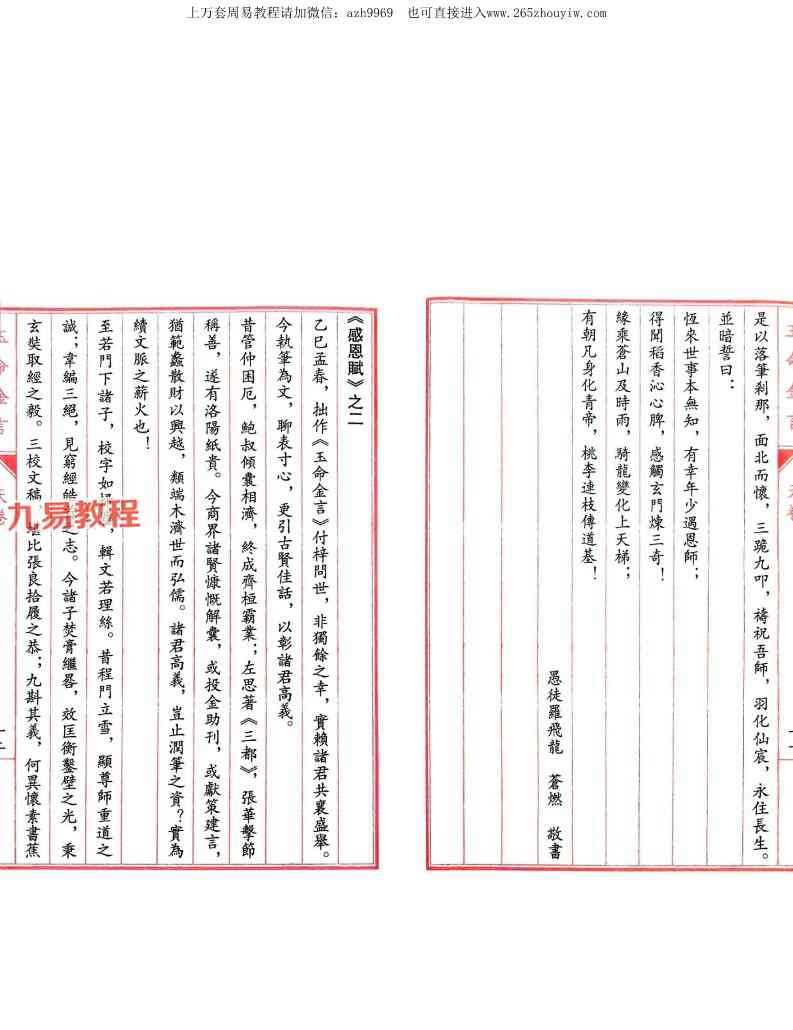 上万套周易教程请加微信：azh9969　也可直接进入www.265zhouyiw.com
是以落筆剎那，面北而懷，三跪九叩，禱祝吾師，羽化仙宸，永住長生。
並暗誓曰：
恆來世事本無知，有幸年少遇恩師；
得聞稻香沁心脾，感觸玄門煉三奇！
緣乘蒼山及時雨，騎龍變化上天梯；
有朝凡身化青帝，桃李連枝傳道基！
愚徒羅飛龍　蒼燃　敬書
《感恩賦》之二
乙巳孟春，拙作《玉命金言》付梓問世，非獨餘之幸，實賴諸君共襄盛舉。
今執筆為文，聊表寸心，更引古賢佳話，以彰諸君高義。
昔管仲困厄，鮑叔傾囊相濟，終成齊桓霸業；左思著《三都》，張華擊節
稱善，遂有洛陽紙貴。今商界諸賢慷慨解囊，或投金助刊，或獻策建言，
猶範蠡散財以興越，類端木濟世而弘儒。諸君高義，豈止潤筆之資？實為
續文脈之薪火也！
至若門下諸子，校字如，輯文若理絲。昔程門立雪，顯尊師重道之
誠；韋編三絕，見窮經皓之志。今諸子焚膏繼晷，效匡衡鑿壁之光，秉
玄奘取經之毅。三校文稿，堪比張良拾履之恭；九斟其義，何異懷素書蕉
玉命金言
天卷
九易教程